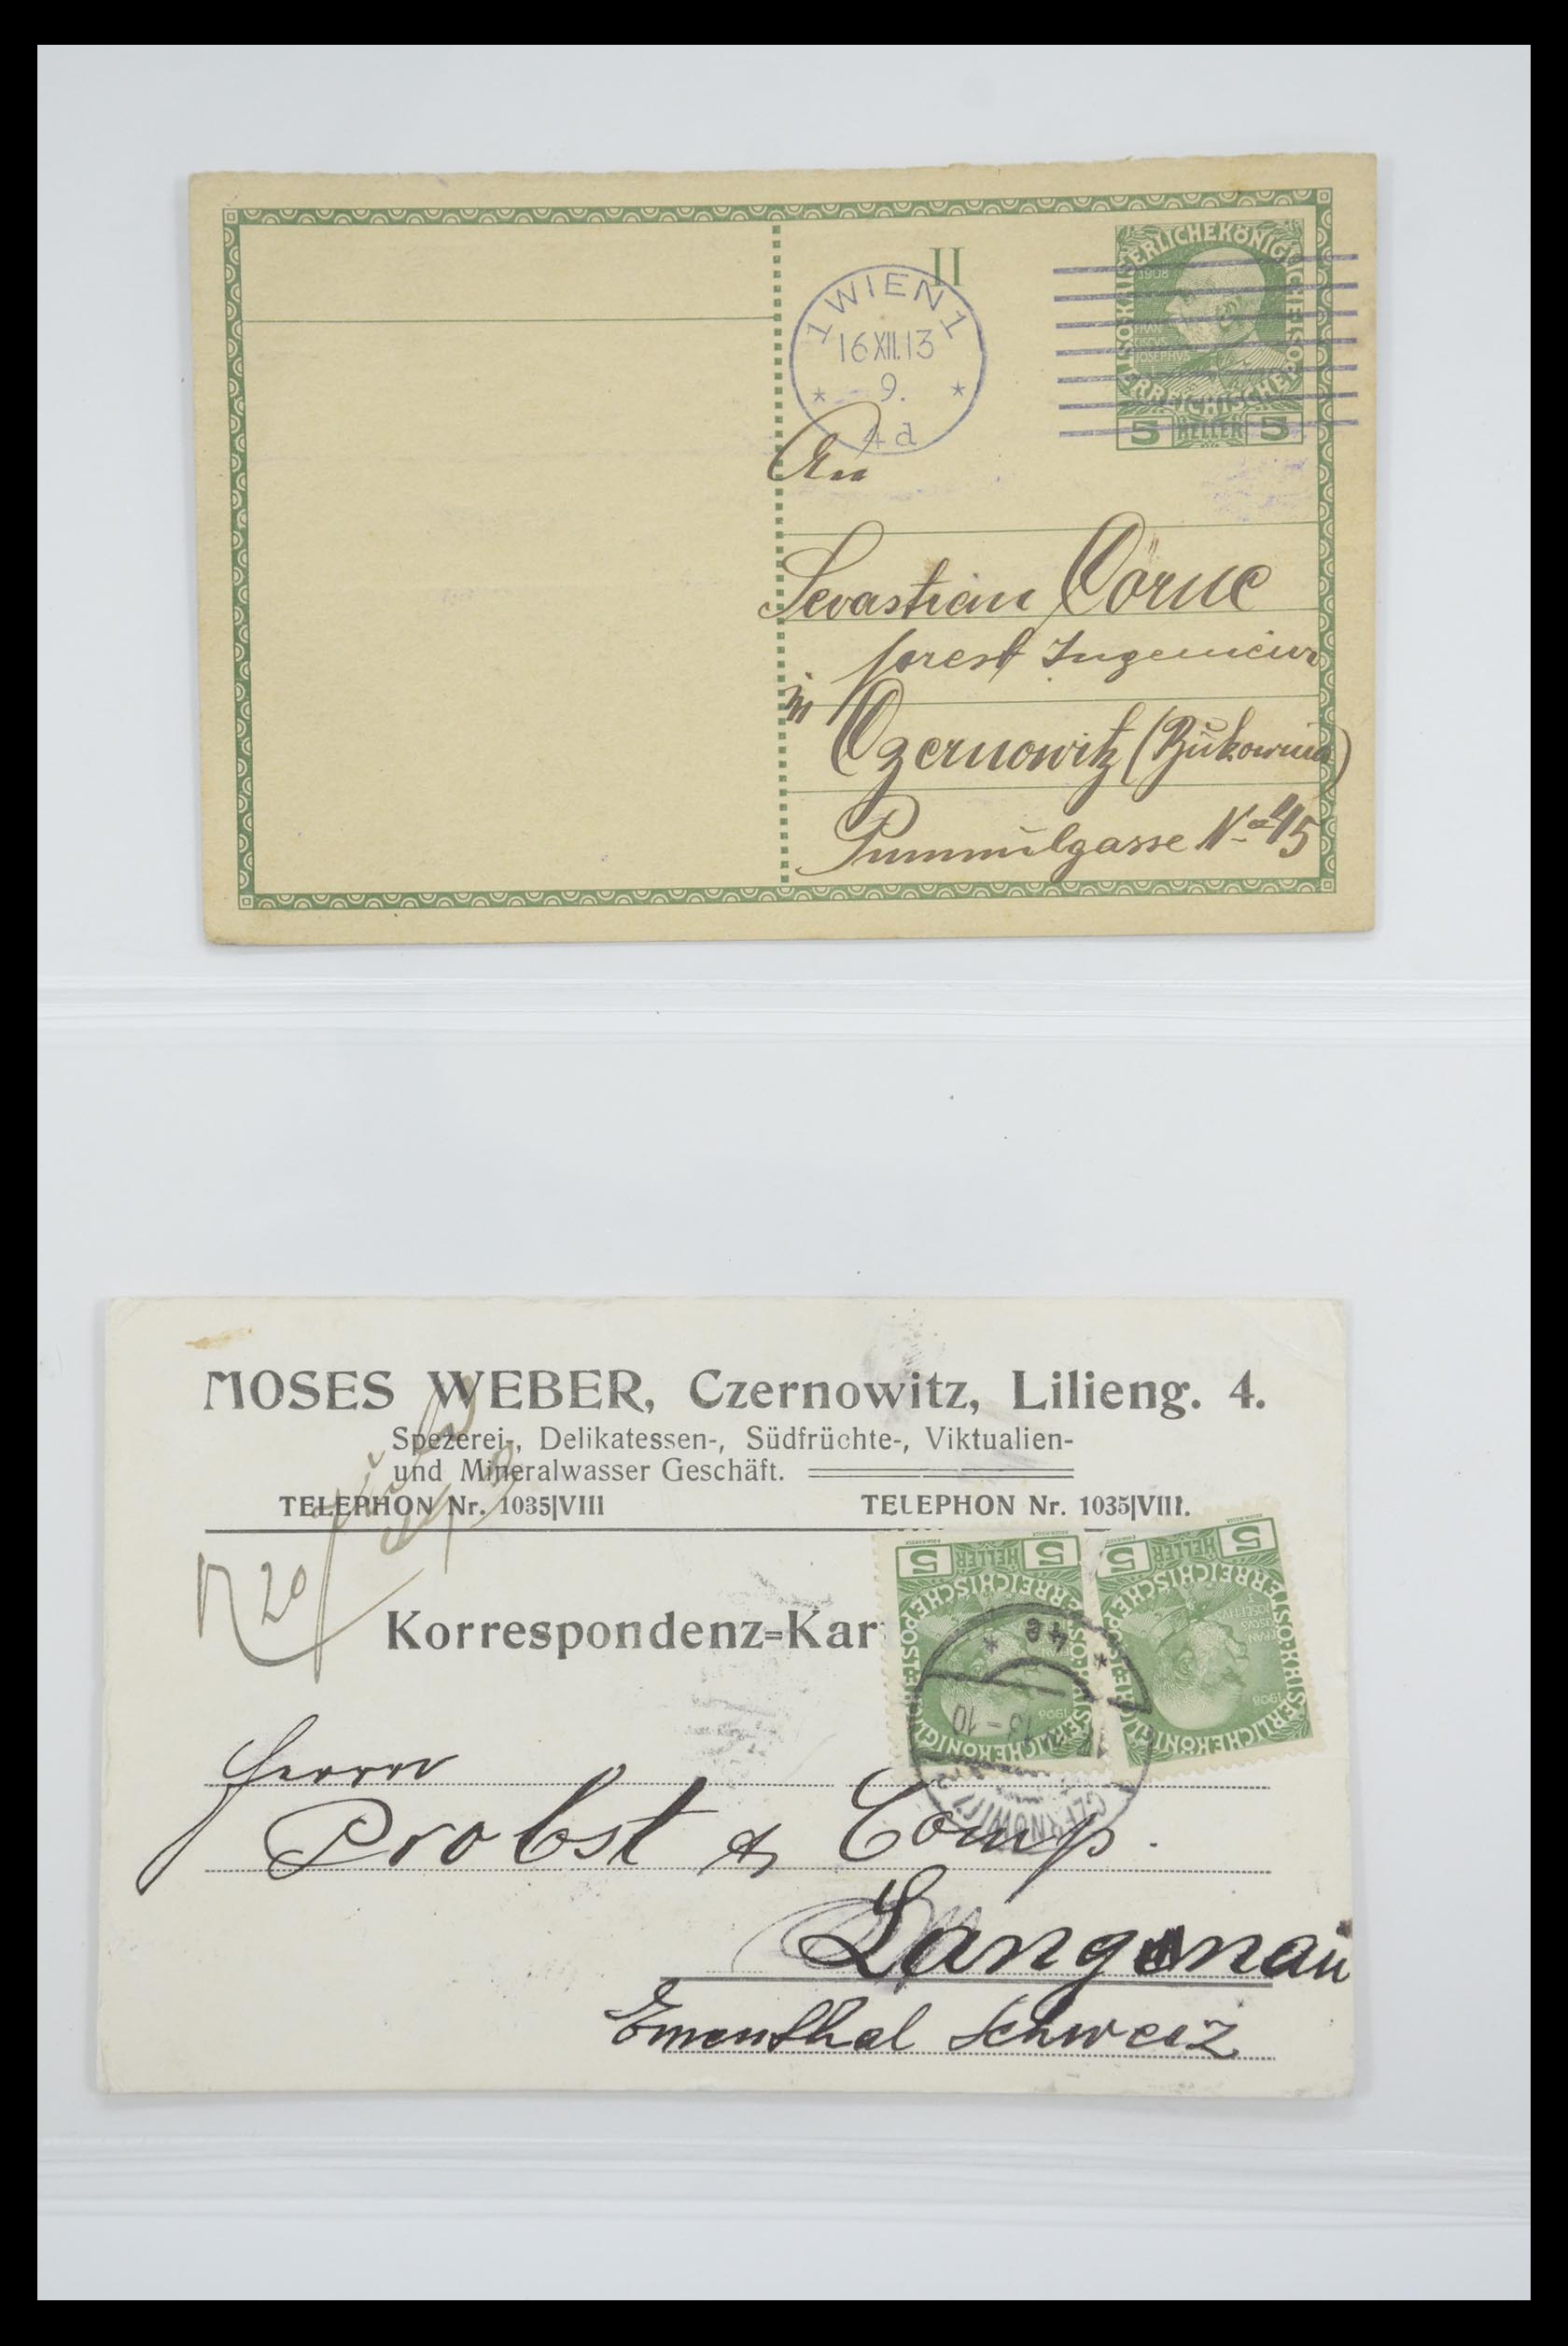 II
1 WIEN 1
16 XII.13
9.
4d
KAISERLICHE KÖNIGLICHE ÖSTERREICHISCHE POST
1908
FRAN
CISCVS
JOSEPHVS
5 HELLER 5
An
Sevastian Cörne
forest Ingenieur
in Czernowitz (Bukowina)
Pummulgasse No 45
MOSES WEBER, Czernowitz, Lilieng. 4.
Spezerei-, Delikatessen-, Südfrüchte-, Viktualien-
und Mineralwasser Geschäft.
TELEPHON Nr. 1035|VIII TELEPHON Nr. 1035|VIII.
20
5 HELLER 5 5 HELLER 5
Korrespondenz=Kar
4e
13-10
CZERNOWITZ
Herrn
Probst & Comp.
Langenau
Ementhal Schweiz